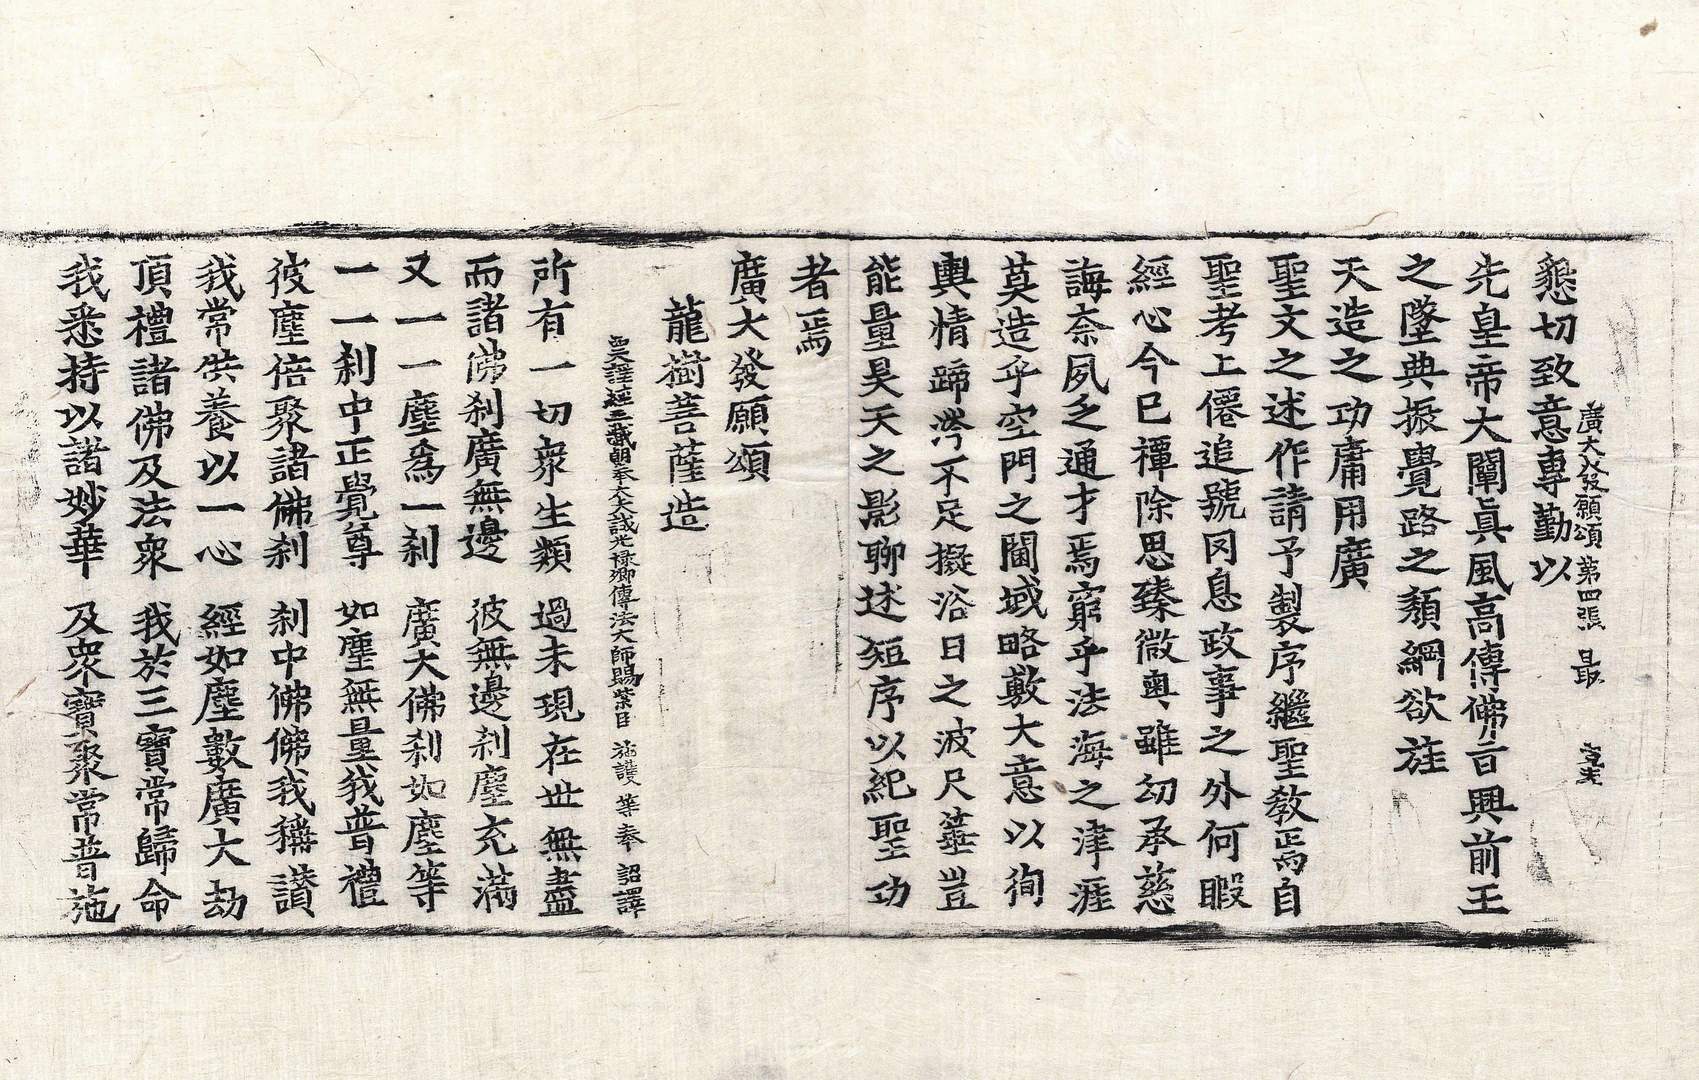 廣大發願頌 第四張 最
懇切致意專勤以
先皇帝大闡眞風高傳佛旨興前王
之墜典振覺路之頽綱欲旌
天造之功庸用廣
聖文之述作請予製序繼聖教焉自
聖考上僊追號罔息政事之外何暇
經心今已禫除思臻微奧雖幼承慈
誨奈夙乏通才焉窮乎法海之津涯
莫造乎空門之閫域略敷大意以徇
輿情蹄涔不足擬浴日之波尺箠豈
能量昊天之影聊述短序以紀聖功
者焉
廣大發願頌
龍樹菩薩造
西天譯經三藏朝奉大夫試光祿卿傳法大師賜紫臣 施護 等奉 詔譯
所有一切衆生類 過未現在世無盡
而諸佛刹廣無邊 彼無邊刹塵充滿
又一一塵爲一刹 廣大佛刹如塵等
一一刹中正覺尊 如塵無量我普禮
彼塵倍聚諸佛刹 刹中佛佛我稱讃
我常供養以一心 經如塵數廣大劫
頂禮諸佛及法衆 我於三寶常歸命
我悉持以諸妙華 及衆寶聚常普施